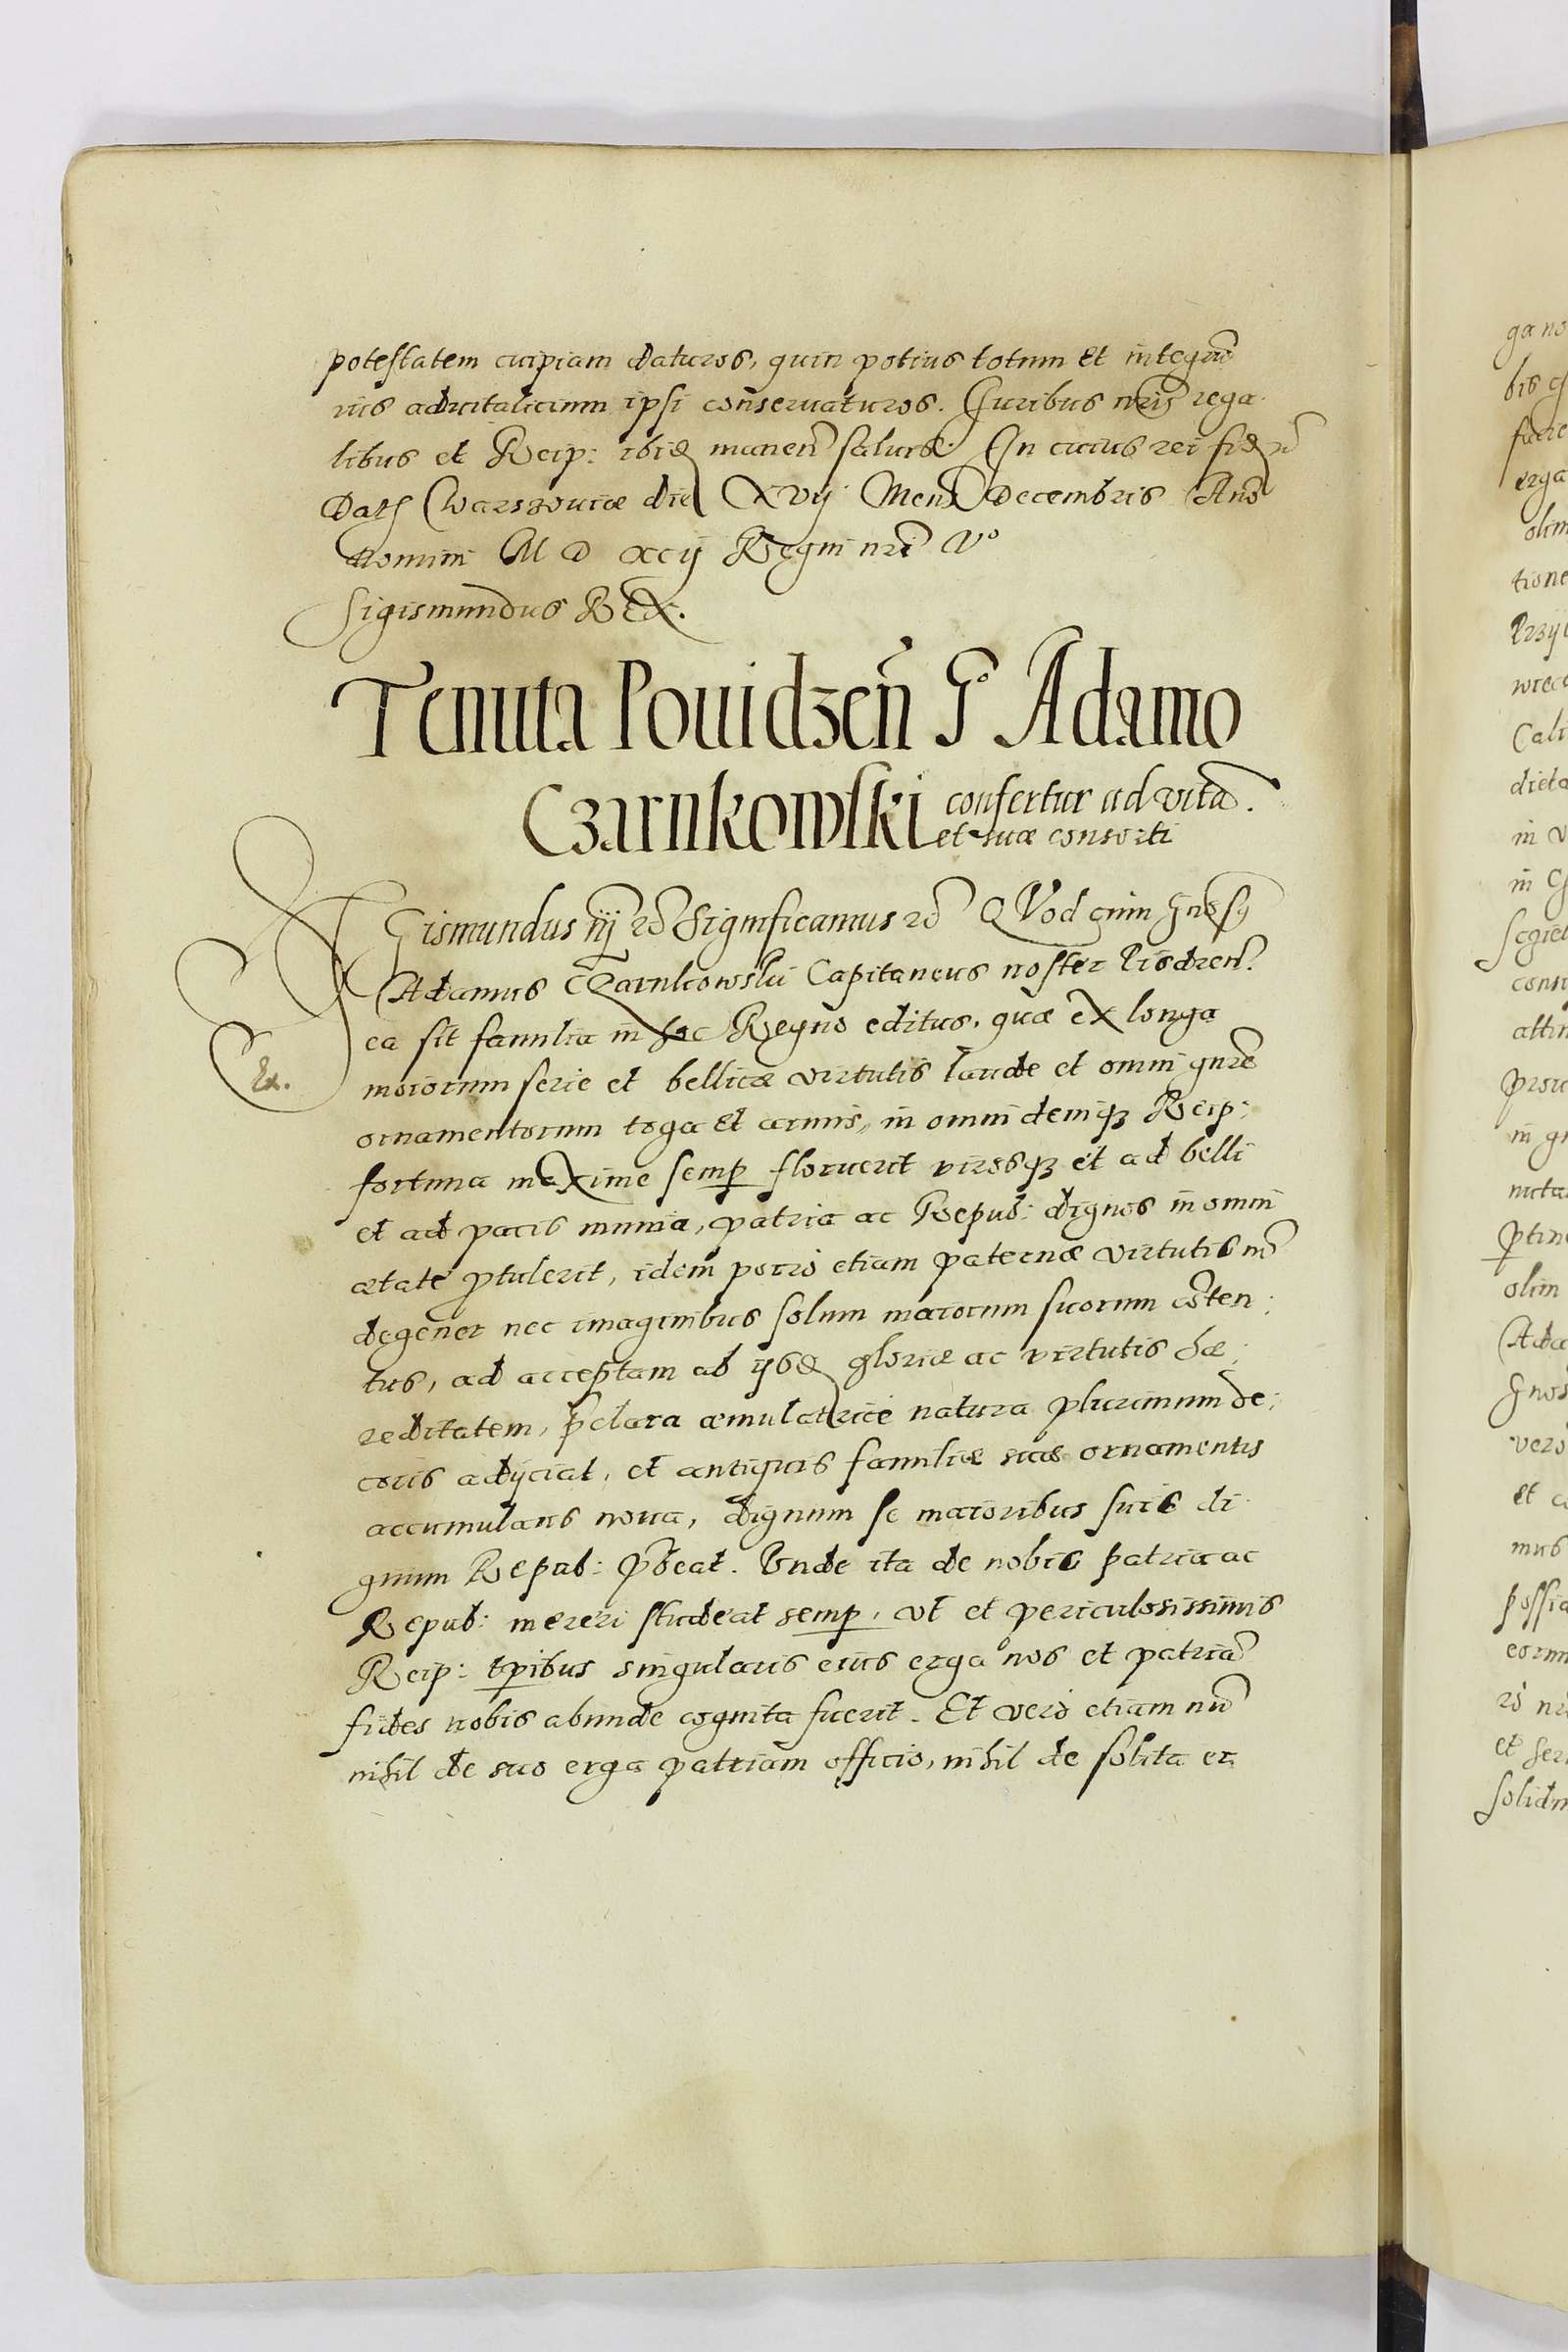 potestatem cuipiam daturos, quin potius totum et integrũ
ius aduitalicium ipsi conseruaturos. Juribus nr̃is rega
libus et Reip: ibid manen̄ saluis. In cuius rei fid
Dat Warszouiæ die XVij Mens Decembris Ano
Domini M D xcij Regni nr̃i Vº
Sigismundus REX.
Tenuta Pouidzen̄ Gº Adamo
Czarnkowski confertur ad vitã.
et suæ consorti
SIGismundus iij Significamus QVod cum Gnosq
Adamus CZarnkowski Capitaneus noster Pisdren.
ea sit familia in hoc Regno editus, quæ eX longa
Ex. maiorum serie et bellicæ virtutis laude et omni gn̄re
ornamentorum toga et armis, in omni demiqȝ Reip:
fortuna maXime semp floruerit virosqȝ et ad belli
et ad pacis munia, patria ac Repub: dignos in omni
ætate ptulerit, idem porro etiam paternæ virtutis nõ
degener nec imaginibus solum maiorum suorum cõten:
tus, ad acceptam ab ijsd gloriæ ac virtutis hæ:
reditatem, p̄clara æmulatrice natura plurimum de:
coris adijciat, et antiquis familiæ suæ ornamentis
accumulans noua, dignum se maioribus suis di
gnum Repub: p̄beat. Vnde ita de nobis patria ac
Repub: mereri studeat semp, vt et periculosissimis
Reip: tpibus singularis eius erga nos et patriã
fides nobis abunde cognita fuerit. Et vero etiam nũ
nihil de suo erga patriam officio, nihil de solita er